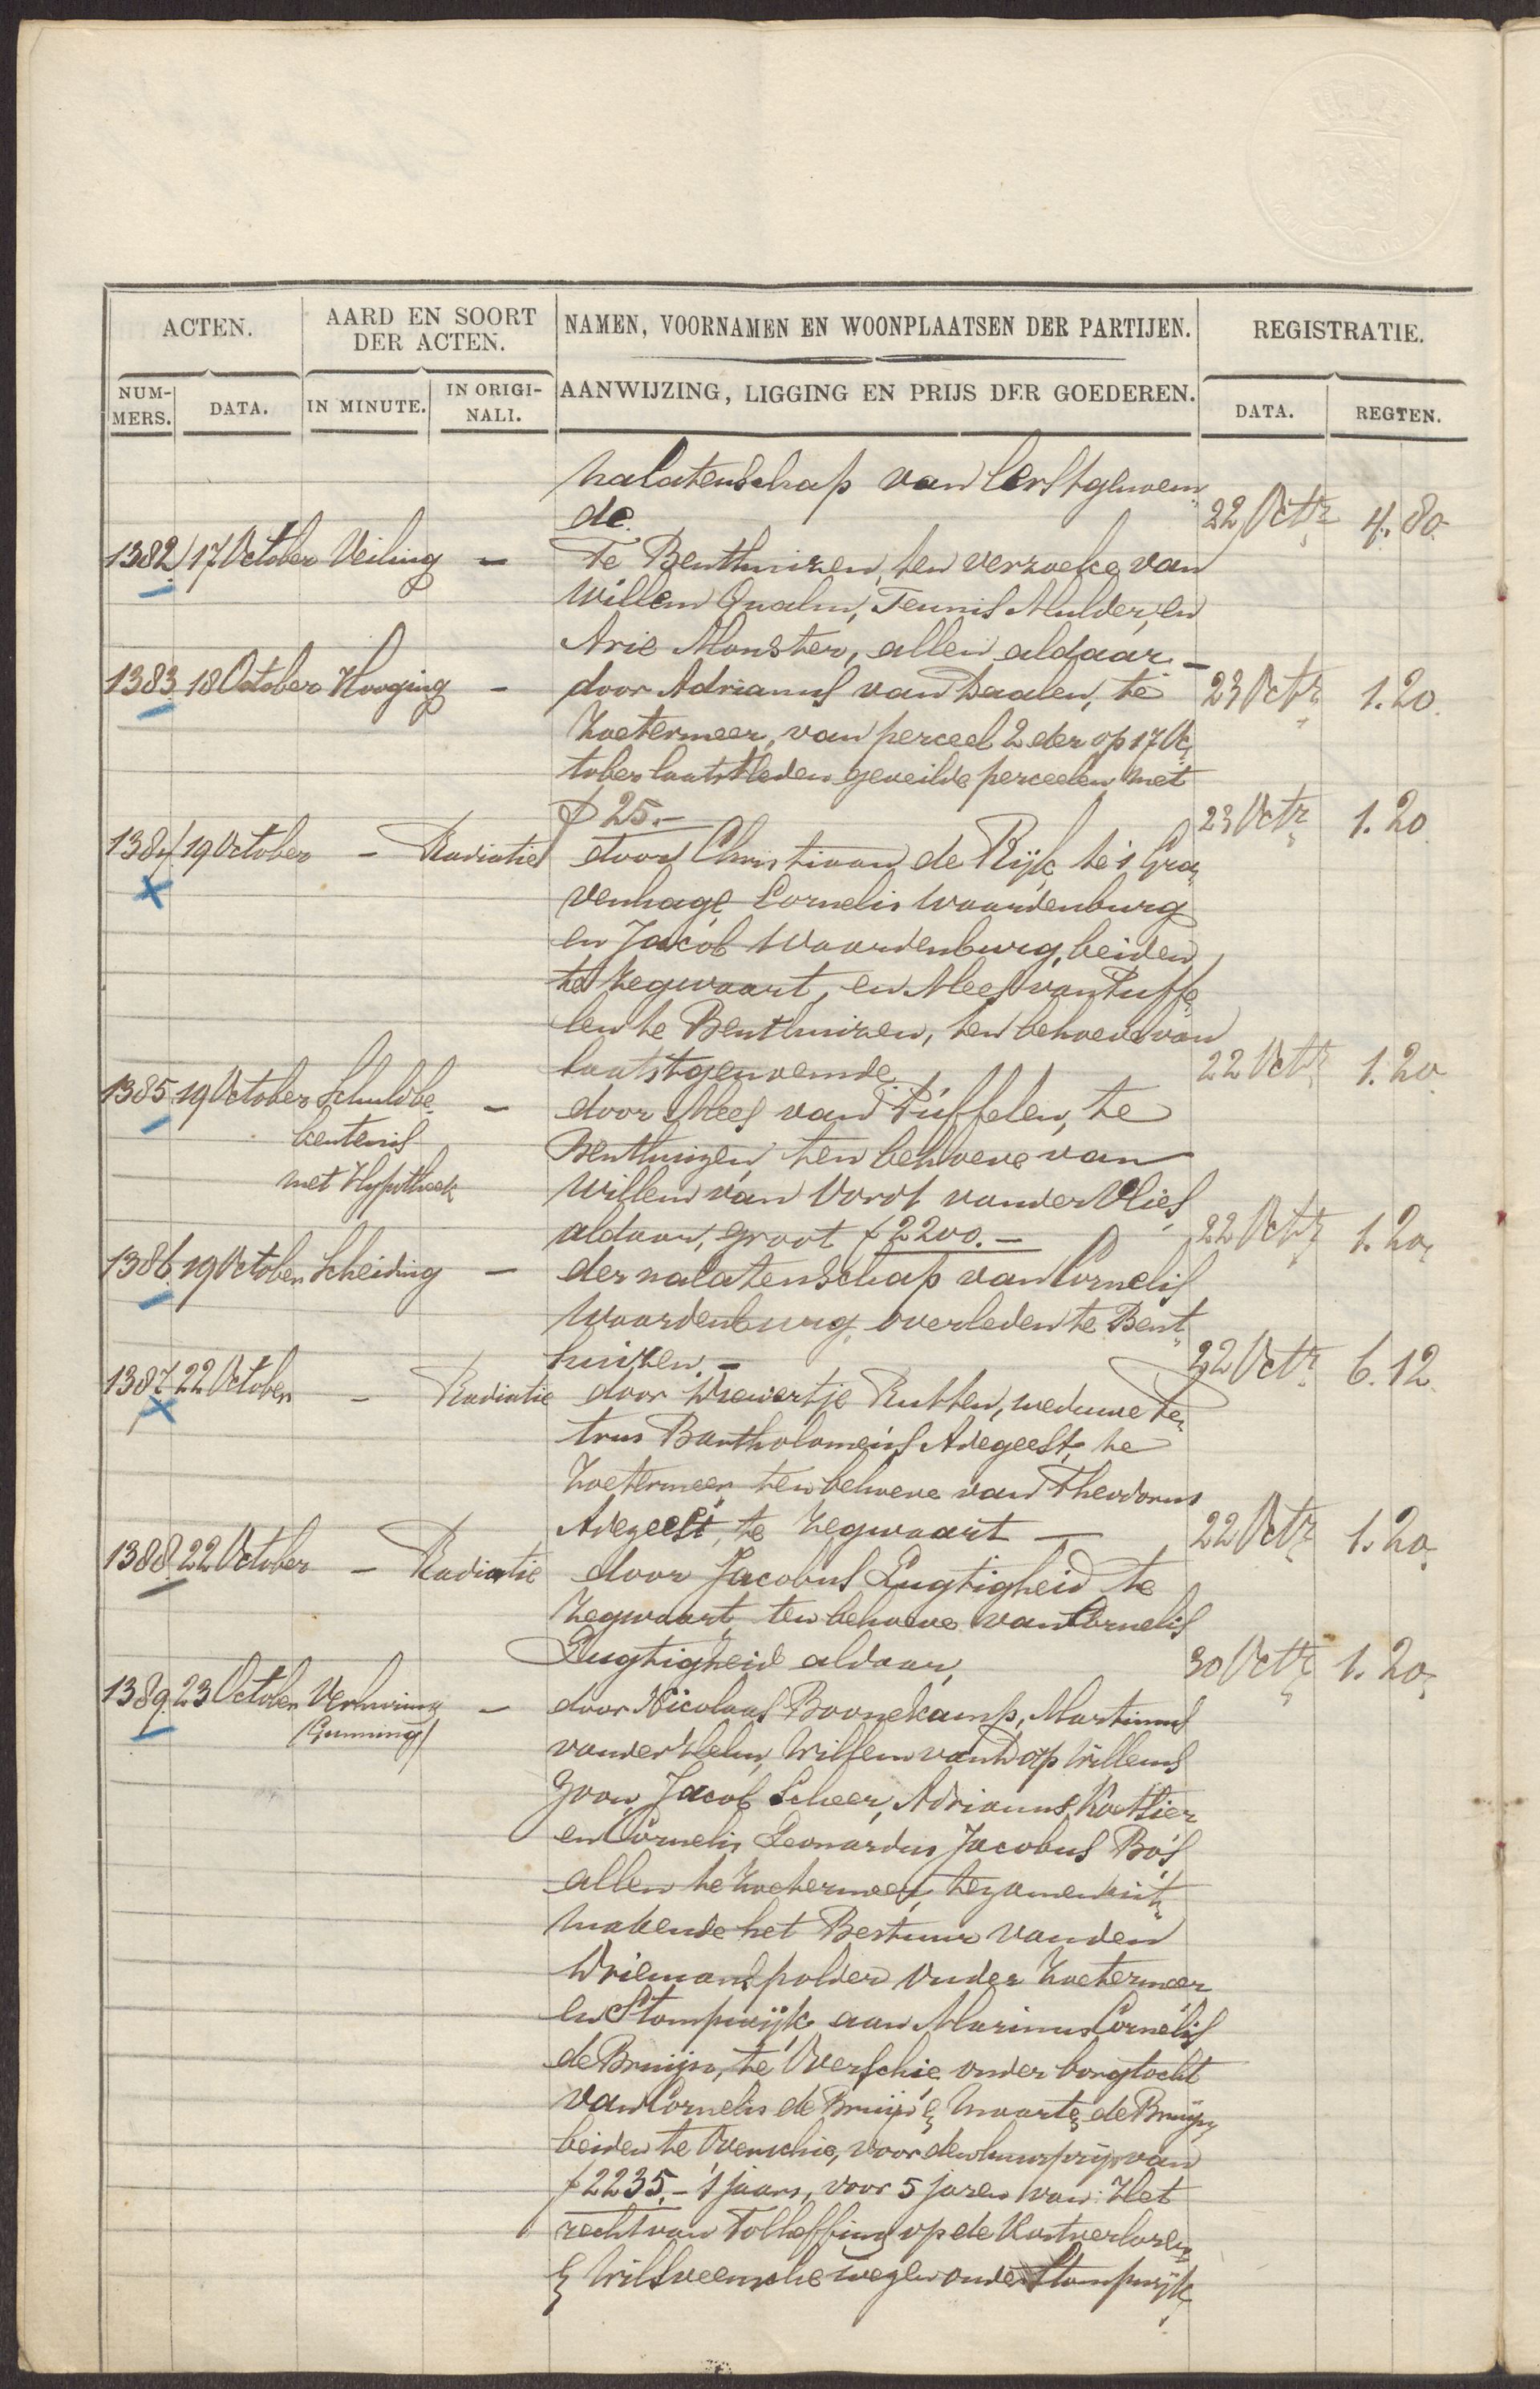 ACTEN.
AARD EN SOORT
DER ACTEN.
NAMEN, VOORNAMEN EN WOONPLAATSEN DER PARTIJEN.
REGISTRATIE.
NUM-
MERS.
DATA.
IN MINUTE.
IN ORIGI-
NALI.
AANWIJZING, LIGGING EN PRIJS DER GOEDEREN.
DATA.
REGTEN.
nalatenschap van Eerstgenoem„
de. 22 Octr 4.80
1382 17 October Veiling – Te Benthuizen, ten verzoeke van
Willem Qualm, Teunis Mulder, en
Arie Monster, allen aldaar. –
1383 18 October Hooging – door Adrianus van Daalen, te 23 Octr 1.20.
Zoetermeer, van perceel 2 der op 17 Oc„
tober laatstleden geveilde perceelen met
ƒ 25.– 23 Octr 1.20
1384 19 October – Radiatie door Christiaan de Rijk, te 's Gra„
venhage Cornelis Waardenburg
en Jacob Waardenburg, beiden
te Zegwaart, en Mees van Puffe„
len te Benthuizen, ten behoeve van
laatstgenoemde. 22 Octr 1.20
1385 19 October Schuldbe„ – door Mees van Puffelen, te
kentenis Benthuizen, ten behoeve van
met Hypotheek Willem van Vordt vander Vlies,
aldaar, groot ƒ 2200.– 22 Octr 1.20
1386. 19 October Scheiding – der nalatenschap van Cornelis
Waardenburg, overleden te Bent„
huizen. – 22 Octr 6.12
1387 22 October – Radiatie door Kniertje Rutten, weduwe Pe„
trus Bartholomeüs Adegeest, te
Zoetermeer, ten behoeve van Theodorus
Adegeest, te Zegwaart – 22 Octr 1.20
1388 22 October – Radiatie door Jacobus Lugtigheid te
Zegwaart, ten behoeve van Cornelis
Lugtigheid aldaar, 30 Octr 1.20
1389. 23 October Verhuring – door Nicolaas Boonekamp, Martinus
(Gunning) vander Helm, Willem van Dorp Willems
Zoon, Jacob Scheer, Adrianus Koettier
en Cornelis Leonardus Jacobus Bos,
allen te Zoetermeer, tezamen uit„
makende het Bestuur van den
Driemanspolder onder Zoetermeer
en Stompwijk aan Marinus Cornelis
de Bruijn, te Overschie, onder borgtocht
van Cornelis de Bruijn & Maarten de Bruijn,
beiden te Overschie, voor den huurprijs van
ƒ 2235.– 's jaars, voor 5 jaren van: Het
recht van Tolheffing op de Kostverloren
& Wilsveensche wegen onder Stompwijk,